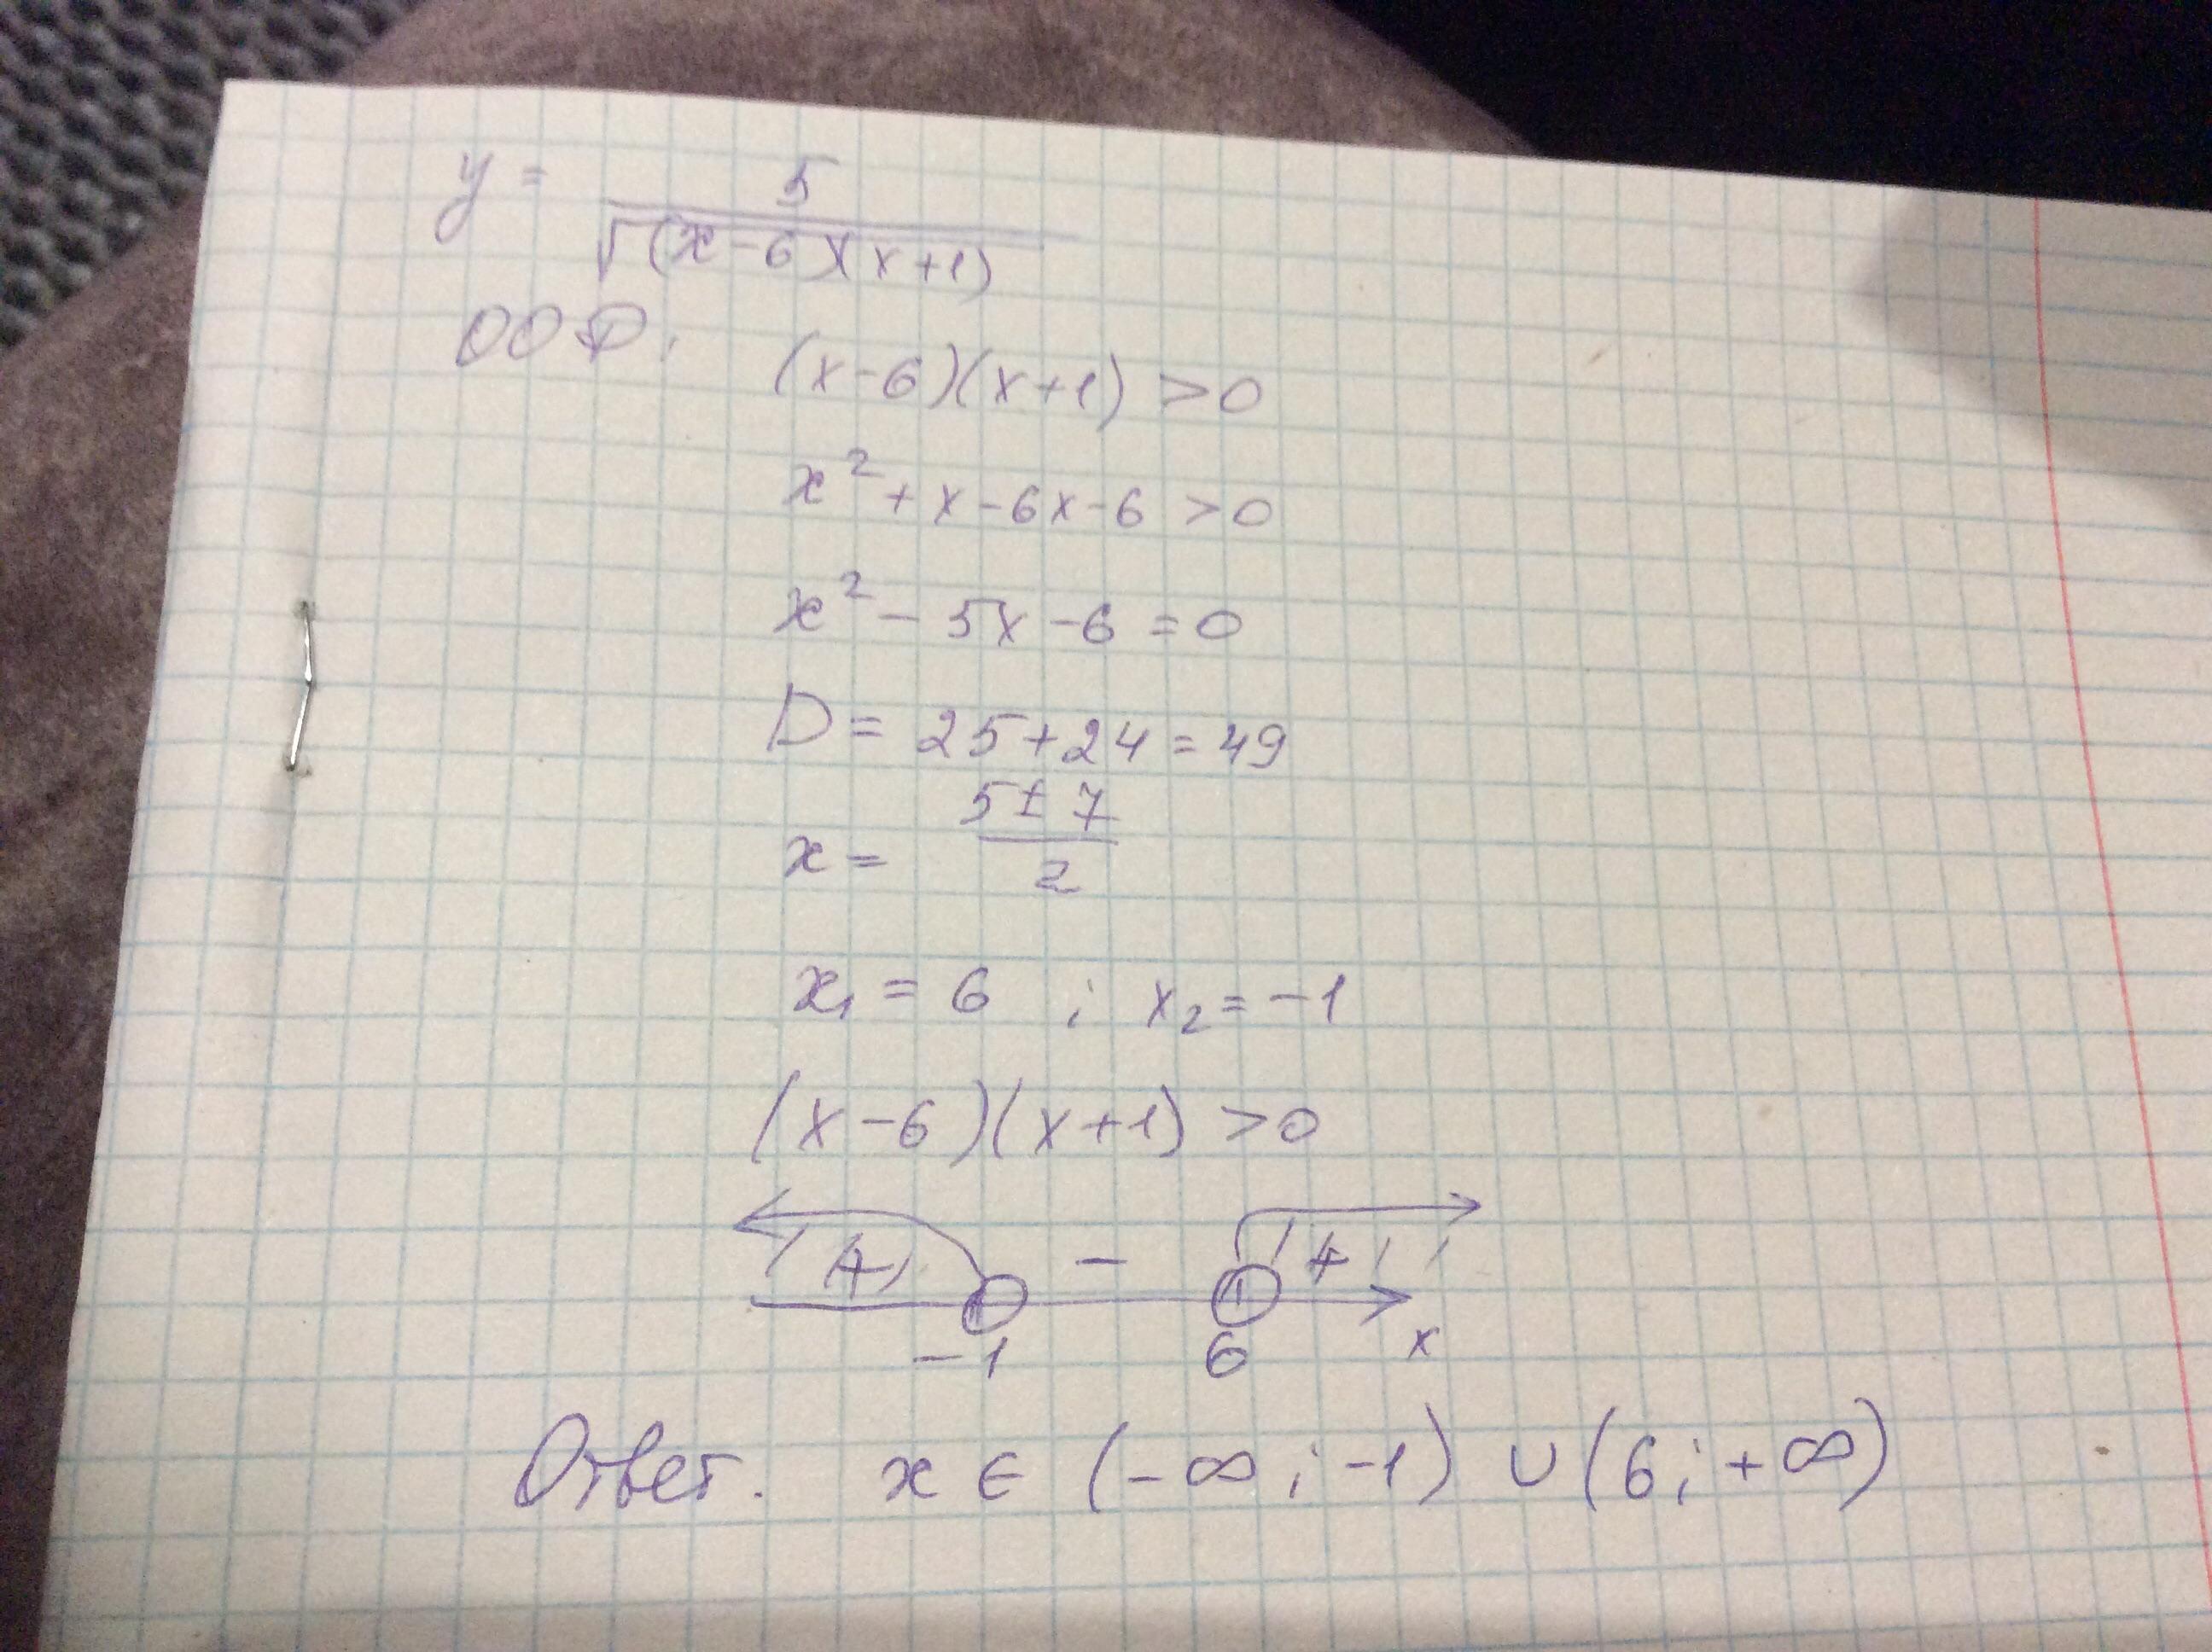 y = 5/√(x-6)(x+1)
ООФ: (x-6)(x+1) >0
x² + x - 6x - 6 >0
x² - 5x - 6 = 0
D = 25+24 = 49
x = (5 ± 7)/2
x₁ = 6 ; x₂ = -1
(x-6)(x+1) >0
+ - +
-1 6 x
Ответ. x ∈ (-∞; -1) ∪ (6; +∞)